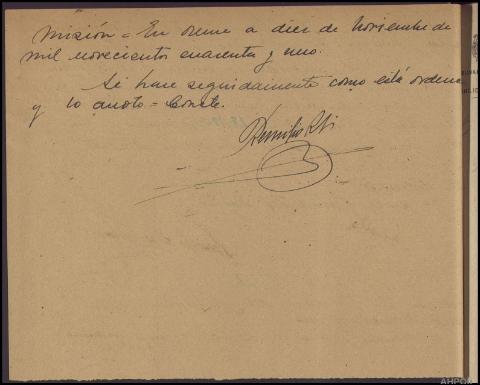 misión = En orense a diez de Noviembre de
mil novecientos cuarenta y uno.
Se hace seguidamente como está ordena
y lo anoto = Conste.
AHPOU